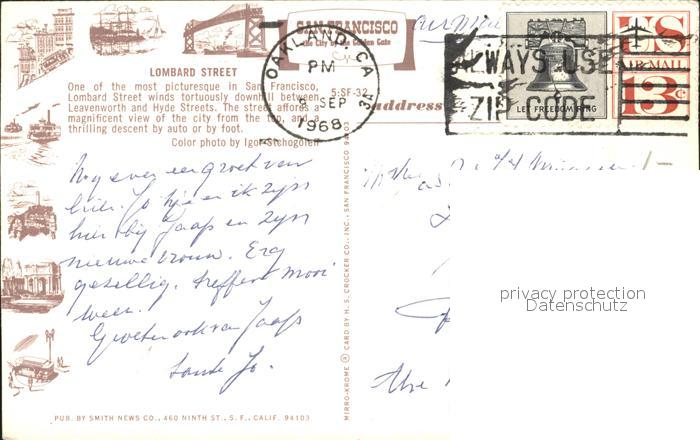 SAN FRANCISCO
the City by the Golden Gate
air mail
LOMBARD STREET
One of the most picturesque in San Francisco,
Lombard Street winds tortuously downhill between
Leavenworth and Hyde Streets. The street affords a
magnificent view of the city from the top, and a
thrilling descent by auto or by foot.
Color photo by Igor
5:SF-32
address
OAKLAND, CA
PM
SEP
1968
ALWAYS USE
ZIP CODE
LET FREEDOM RING
US
AIR MAIL
13c
Nog even een groet van
hier. Jo en ik zijn
hier bij Jaap en zijn
nieuwe vrouw. Erg
gezellig. treffen mooi
weer.
Groeten ook van Jaap
tante Jo.
the
MIRRO-KROME ® CARD BY H. S. CROCKER CO., INC., SAN FRANCISCO
PUB. BY SMITH NEWS CO., 460 NINTH ST., S. F., CALIF. 94103
privacy protection
Datenschutz